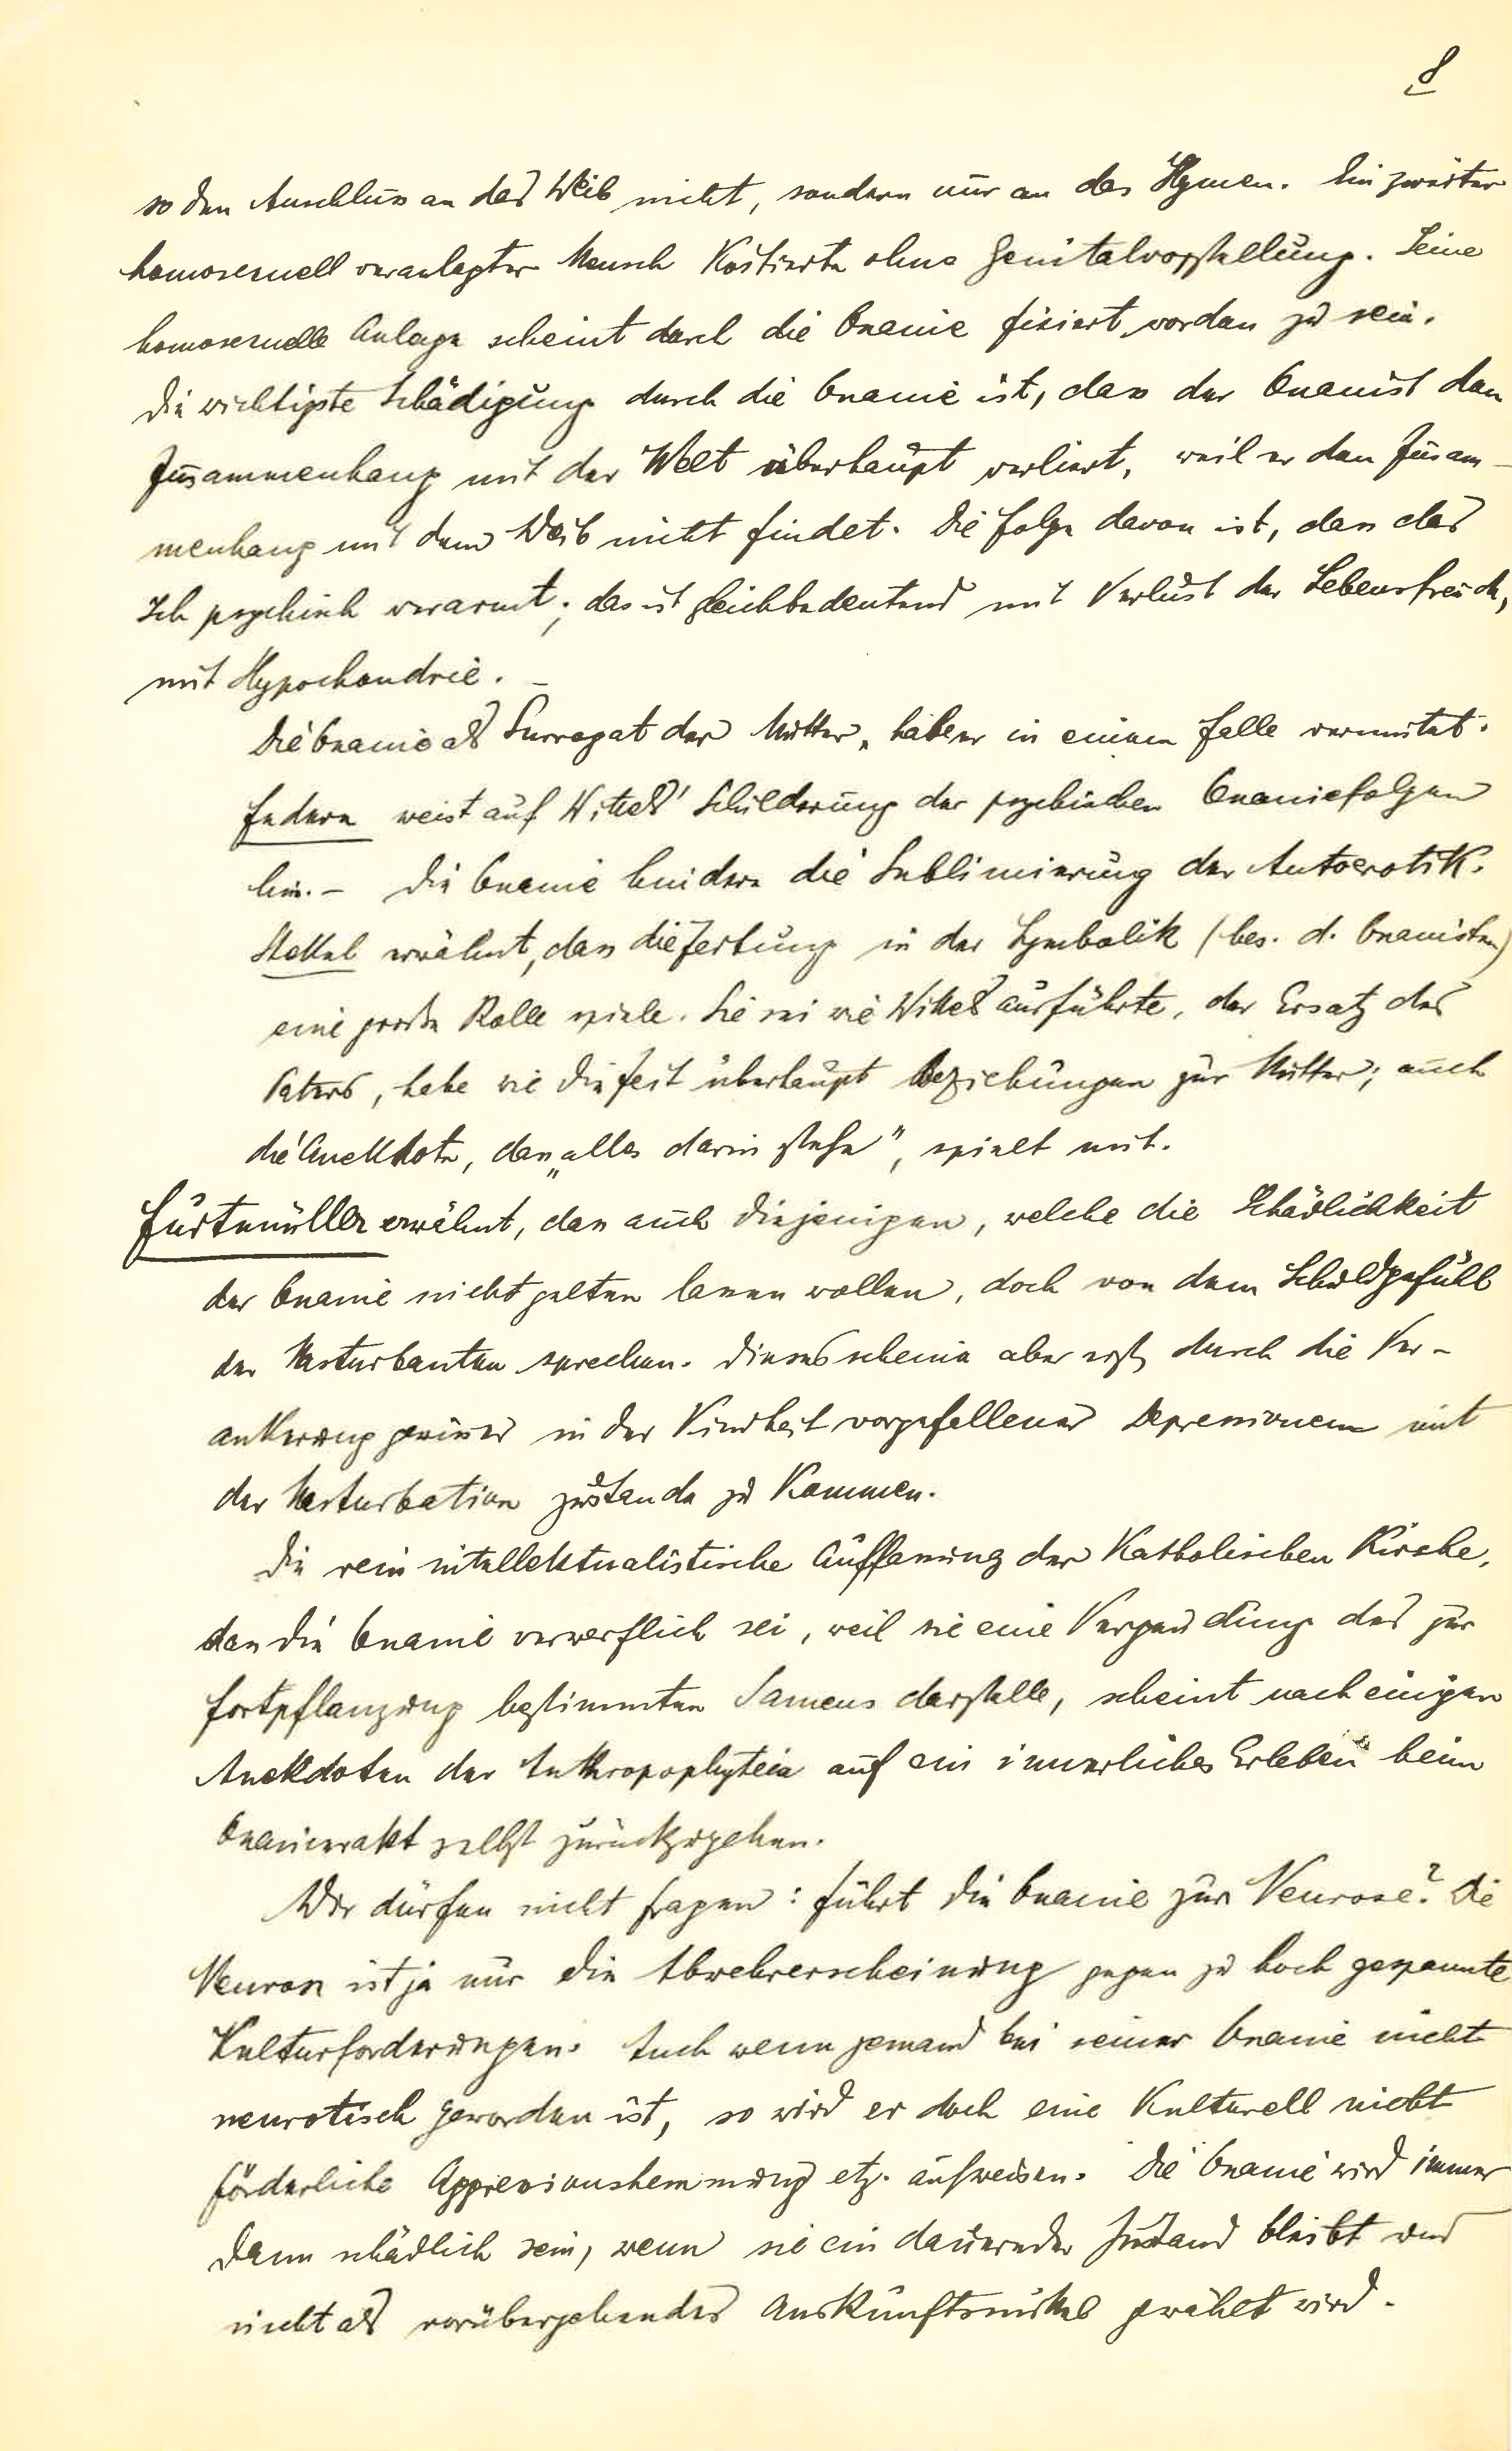 8
so den Anschluss an das Weib nicht, sondern nur an das Hymen. Ein zweiter
homosexuell veranlagter Mensch Koitierte ohne Genitalvorstellung. Seine
homosexuelle Anlage scheint durch die Onanie fixiert worden zu sein.
Die wichtigste Schädigung durch die Onanie ist, dass der Onanist den
Zusammenhang mit der Welt überhaupt verliert, weil er den Zusam-
menhang mit dem Weib nicht findet. Die Folge davon ist, dass das
Ich psychisch verarmt; das ist gleichbedeutend mit Verlust der Lebensfreude,
mit Hypochondrie. –
Die Onanie als Surrogat der Mutter, habe er in einem Falle vermutet.
Federn weist auf Wittels' Schilderung der psychischen Onaniefolgen
hin. – Die Onanie hindere die Sublimierung der Autoerotik.
Stekel erwähnt, dass die Zeitung in der Symbolik (bes. d. Onanisten)
eine grosse Rolle spiele. Sie sei wie Wittels ausführte, der Ersatz des
Vaters, habe wie die Zeit überhaupt Beziehungen zur Mutter; auch
die Anekdote, dass „alles darin stehe", spielt mit.
Furtmüller erwähnt, dass auch diejenigen, welche die Schädlichkeit
der Onanie nicht gelten lassen wollen, doch von dem Schuldgefühl
der Masturbanten sprechen. Dieses scheine aber erst durch die Ver-
ankerung gewisser in der Kindheit vorgefallener Depressionen mit
der Masturbation zustande zu Kommen.
Die rein intellektualistische Auffassung der Katholischen Kirche,
dass die Onanie verwerflich sei, weil sie eine Vergeudung des zur
Fortpflanzung bestimmten Samens darstelle, scheint nach einigen
Anekdoten der Anthropophyteia auf ein innerliches Erleben beim
Onanierakt selbst zurückzugehen.
Wir dürfen nicht fragen: führt die Onanie zur Neurose? Die
Neurose ist ja nur die Abwehrerscheinung gegen zu hoch gespannte
Kulturforderungen. Auch wenn jemand bei seiner Onanie nicht
neurotisch geworden ist, so wird er doch eine Kulturell nicht
förderliche Aggressionshemmung etz. aufweisen. Die Onanie wird immer
dann schädlich sein, wenn sie ein dauernder Zustand bleibt und
nicht als vorübergehendes Auskunftsmittel gewählt wird.